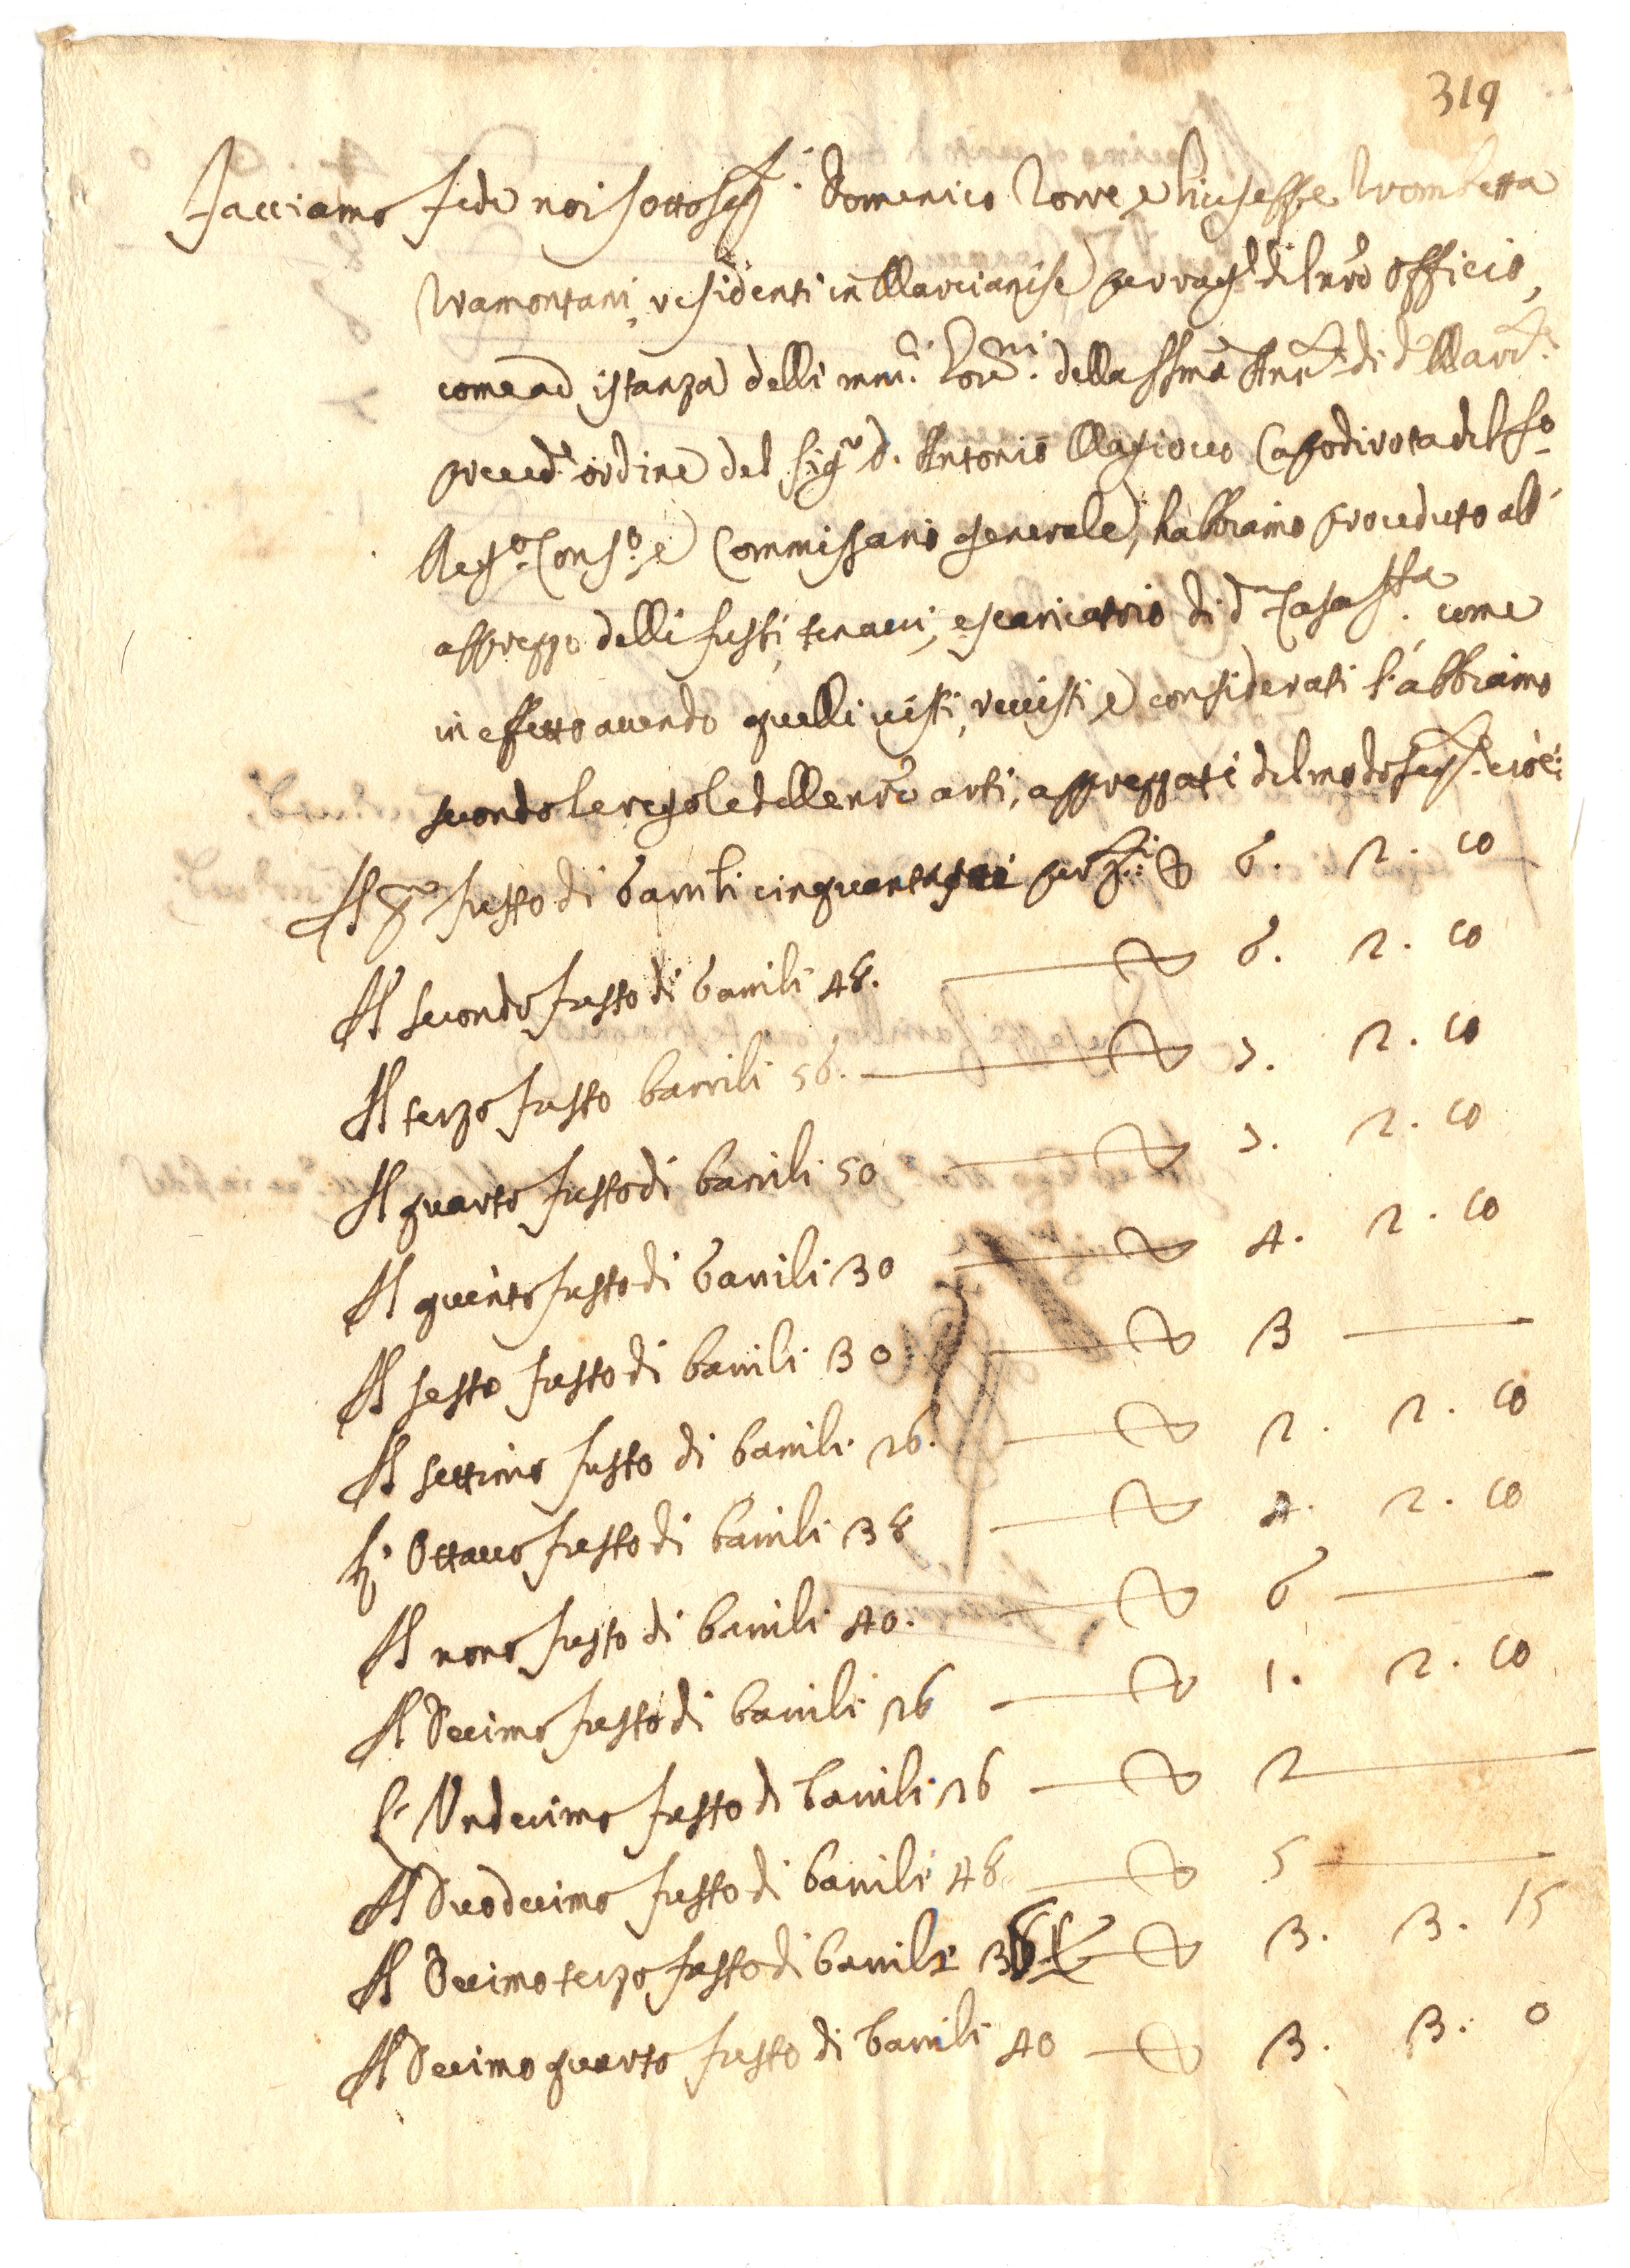 319
Facciamo fede noi sottoscritti Domenico Torre e Giuseppe Trombetta
tramontani, residenti in Marcianise per rag.e del nr̃o officio,
come ad istanza delli della SS̃ma di d.ᵃ Marc.ᵉ
preced.ᵉ ordine del Sig.ʳ D. Antonio Magiocco Capodirota del S.º
Reg.º Cons.º, e Commissario generale, habbiamo proceduto all'
apprezzo delli fusti, tenacci, e scaricatoio di d.ᵃ Casa S.ᵗᵃ come
in effetto avendo quelli visti, revisti e considerati l'abbiamo
secondo le regole delle nr̃e arti, apprezzati del modo seg.ᵗᵉ cioè:
Il p.º fusto di barrili cinquantasei per 6. 2. 10
Il secondo fusto di barrili 48. 6. 2. 10
Il terzo fusto barrili 56. 7. 2. 10
Il quarto fusto di barrili 50 7. 2. 10
Il quinto fusto di barrili 30 4. 2. 10
Il sesto fusto di barrili 30 3
Il settimo fusto di barrili 26. 2. 2. 10
L'Ottavo fusto di barrili 38 4. 2. 10
Il nono fusto di barrili 40. 6
Il Decimo fusto di barrili 26 1. 2. 10
L'Undecimo fusto di barrili 26 2
Il Duodecimo fusto di barrili 48 5
Il Decimoterzo fusto di barrili 36 3. 3. 15
Il Decimoquarto fusto di barrili 40 3. 3. 0